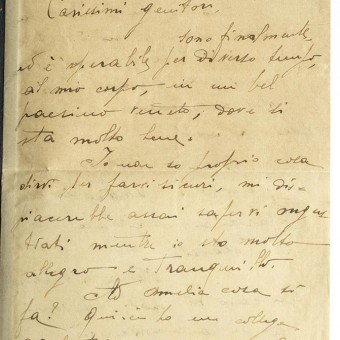 Carissimi genitori,
sono finalmente,
ed è sperabile per diverso tempo,
al mio corpo, in un bel
paesino veneto, dove si
sta molto bene.
Io non so proprio cosa
dirvi per farvi sicuri, mi di-
spiacerebbe assai sapervi angu
stiati mentre io sto molto
allegro e tranquillo.
Ad Amelia cosa si
fa? Qui io ho un collega